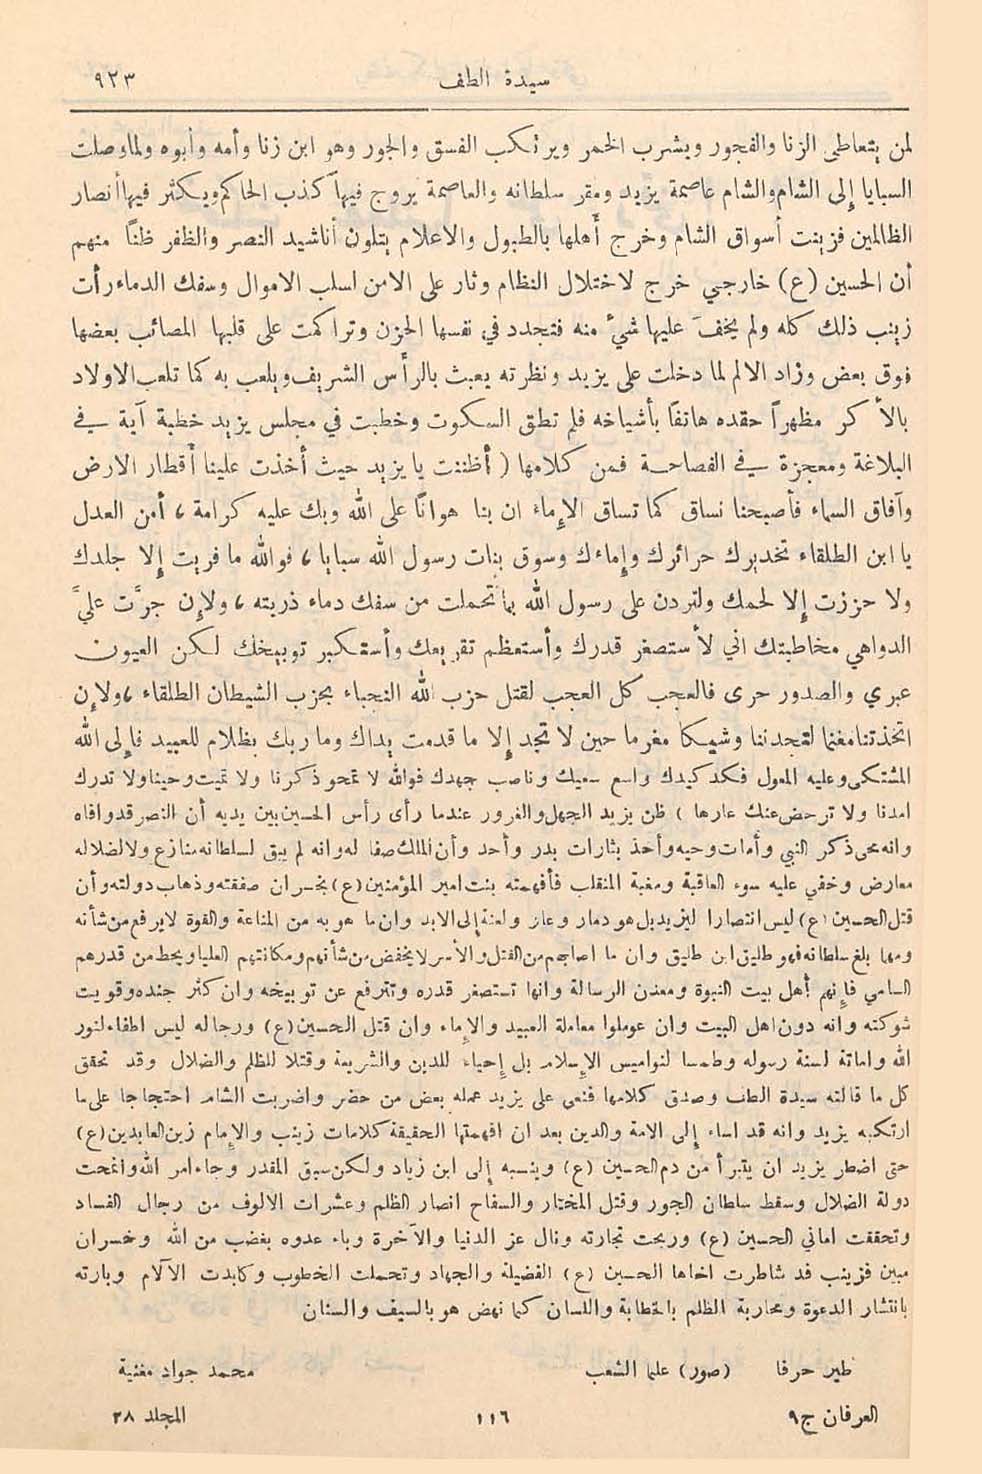 سيدة الطف ٩٢٣
لمن يتعاطى الزنا والفجور ويشرب الخمر ويرتكب الفسق والجور وهو ابن زنا وأمه وأبوه ولما وصلت
السبايا إلى الشام والشام عاصمة يزيد ومقر سلطانه والعاصمة يروج فيها كذب الحاكم ويكثر فيها أنصار
الظالمين فزينت أسواق الشام وخرج أهلها بالطبول والاعلام يتلون أناشيد النصر والظفر ظناً منهم
أن الحسين (ع) خارجي خرج لاختلال النظام وثار على الامن لسلب الاموال وسفك الدماء رأت
زينب ذلك كله ولم يخفَ عليها شيء منه فتجدد في نفسها الحزن وتراكمت على قلبها المصائب بعضها
فوق بعض وزاد الالم لما دخلت على يزيد ونظرته يعبث بالرأس الشريف ويلعب به كما تلعب الاولاد
بالأكر مظهراً حقده هاتفا بأشياخه فلم تطق السكوت وخطبت في مجلس يزيد خطبة آية في
البلاغة ومعجزة في الفصاحة فمن كلامها ( أظننت يا يزيد حيث أخذت علينا أقطار الارض
وآفاق السماء فأصبحنا نساق كما تساق الإماء ان بنا هواناً على الله وبك عليه كرامة ، أمن العدل
يا ابن الطلقاء تخديرك حرائرك وإماءك وسوق بنات رسول الله سبايا ، فوالله ما فريت إلا جلدك
ولا حززت إلا لحمك ولتردن على رسول الله بما تحملت من سفك دماء ذريته ، ولإن جرَّت عليَّ
الدواهي مخاطبتك اني لأستصغر قدرك وأستعظم تقريعك وأستكبر توبيخك لكن العيون
عبرى والصدور حرى فالعجب كل العجب لقتل حزب الله النجباء بحزب الشيطان الطلقاء ، ولإن
اتخذتنا مغنما لتجدننا وشيكا مغرما حين لا تجد إلا ما قدمت يداك وما ربك بظلام للعبيد فإلى الله
المشتكى وعليه المعول فكد كيدك واسع سعيك وناصب جهدك فوالله لا تمحو ذكرنا ولا تميت وحينا ولا تدرك
امدنا ولا ترحض عنك عارها ) ظن يزيد الجهل والغرور عندما رأى رأس الحسين بين يديه أن النصر قد وافاه
وانه محى ذكر النبي وأمات وحيه وأخذ بثارات بدر وأحد وأن الملك صفا له وانه لم يبق لسلطانه منازع ولا لضلاله
معارض وخفي عليه سوء العاقبة ومغبة المنقلب فأفهمته بنت امير المؤمنين (ع) بخسران صفقته وذهاب دولته وأن
قتل الحسين (ع) ليس انتصارا ليزيد بل هو دمار وعار ولعنة إلى الابد وان ما هو به من المناعة والقوة لا يرفع من شأنه
ومهما بلغ سلطانه فهو طليق ابن طليق وان ما اصابهم من القتل والأسر لا يخفض من شأنهم ومكانتهم العليا ويحط من قدرهم
السامي فإنهم أهل بيت النبوة ومعدن الرسالة وانها تستصغر قدره وتترفع عن توبيخه وان كثر جنده وقويت
شوكته وانه دون اهل البيت وان عوملوا معاملة العبيد والإماء وان قتل الحسين (ع) ورجاله ليس اطفاء لنور
الله واماتة لسنة رسوله وطمسا لنواميس الإسلام بل إحياء للدين والشريعة وقتلا للظلم والضلال وقد تحقق
كل ما قالته سيدة الطف وصدق كلامها فنعى على يزيد عمله بعض من حضر واضربت الشام احتجاجا على ما
ارتكبه يزيد وانه قد اساء إلى الامة والدين بعد ان افهمتها الحقيقة كلامات زينب والإمام زين العابدين (ع)
حتى اضطر يزيد ان يتبرأ من دم الحسين (ع) وينسبه إلى ابن زياد ولكن سبق المقدر وجاء امر الله وانمحت
دولة الضلال وسقط سلطان الجور وقتل المختار والسفاح انصار الظلم وعشرات الالوف من رجال الفساد
وتحققت اماني الحسين (ع) وربحت تجارته ونال عز الدنيا والآخرة وباء عدوه بغضب من الله وخسران
مبين فزينب قد شاطرت اخاها الحسين (ع) الفضيلة والجهاد وتحملت الخطوب وكابدت الآلام وبارته
بانتشار الدعوة ومحاربة الظلم بالخطابة واللسان كما نهض هو بالسيف والسنان
طير حرفا (صور) علما الشعب محمد جواد مغنية
العرفان ج٩ ١١٦ المجلد ٢٨